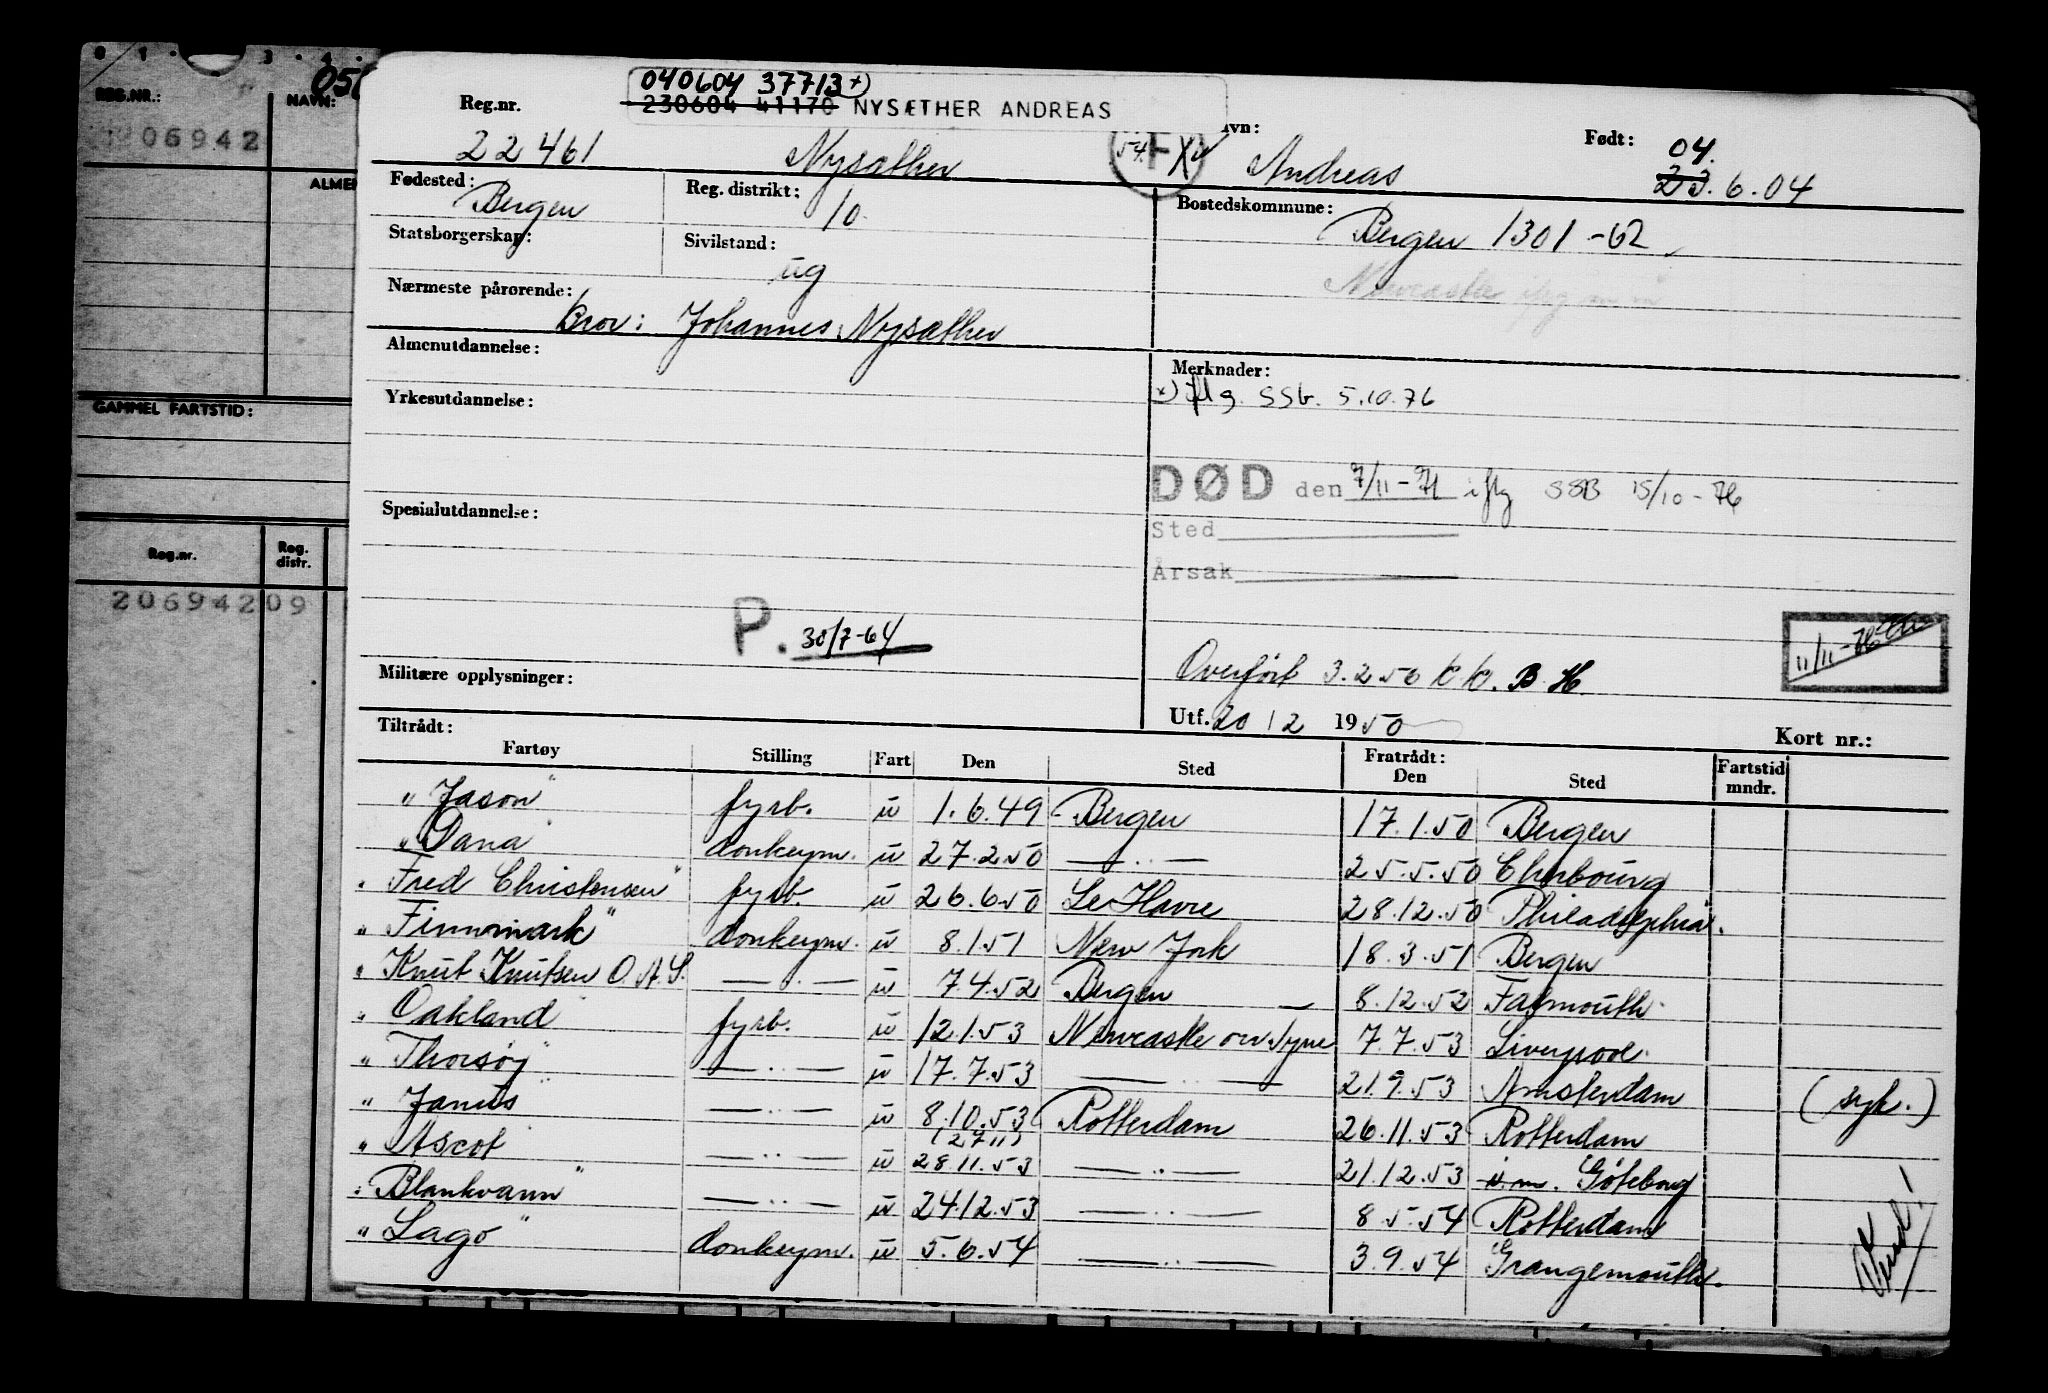 0 1 3 4
050
REG.NR.:
NAVN:
206942
ALMEN
GAMMEL FARTSTID:
Reg.nr.
Reg. distr.
206942 09
040604 37713 *)
230604 41170 NYSÆTHER ANDREAS
Reg.nr. avn: Født:
22461 Nysæther 54. F X Andreas 04. 23.6.04
Fødested: Bergen Reg. distrikt: 10 Bostedskommune: Bergen 1301-62
Statsborgerskap: Sivilstand: ug
Newcastle
Nærmeste pårørende: bror: Johannes Nysæther
Almenutdannelse: Merknader:
*) iflg. SSb. 5.10.76
Yrkesutdannelse:
DØD den 7/11-71 iflg SSB 15/10-76
Spesialutdannelse:
Sted
Årsak
P. 30/7-64
11/11-76
Overført 3.2.56 k.k. B.H.
Militære opplysninger:
Utf. 20/2 1950 Kort nr.:
Tiltrådt:
Fartøy Stilling Fart Den Sted Fratrådt: Den Sted Fartstid mndr.
"Jason" fyrb. u 1.6.49 Bergen 17.1.50 Bergen
"Dana" donkeym. u 27.2.50 —..— 25.5.50 Cherbourg
"Fred Christensen" fyrb. u 26.6.50 Le Havre 28.12.50 Philadelphia.
"Finnmark" donkeym. u 8.1.51 New York 18.3.51 Bergen
"Knut Knutsen O.A.S. —.— u 7.4.52 Bergen 8.12.52 Falmouth.
"Oakland fyrb. u 12.1.53 Newcastle on Tyne 7.7.53 Liverpool.
"Thorsøy" —..— u 17.7.53 —..— 21.9.53 Amsterdam (syk.)
"Janus" —..— u 8.10.53 Rotterdam 26.11.53 Rotterdam
(27 11)
"Ascot —..— u 28.11.53 —..— 21.12.53 u.m. Göteborg
"Blankvann" —..— u 24.12.53 —..— 8.5.54 Rotterdam
"Lago" donkeym. u 5.6.54 —..— 3.9.54 Grangemouth.